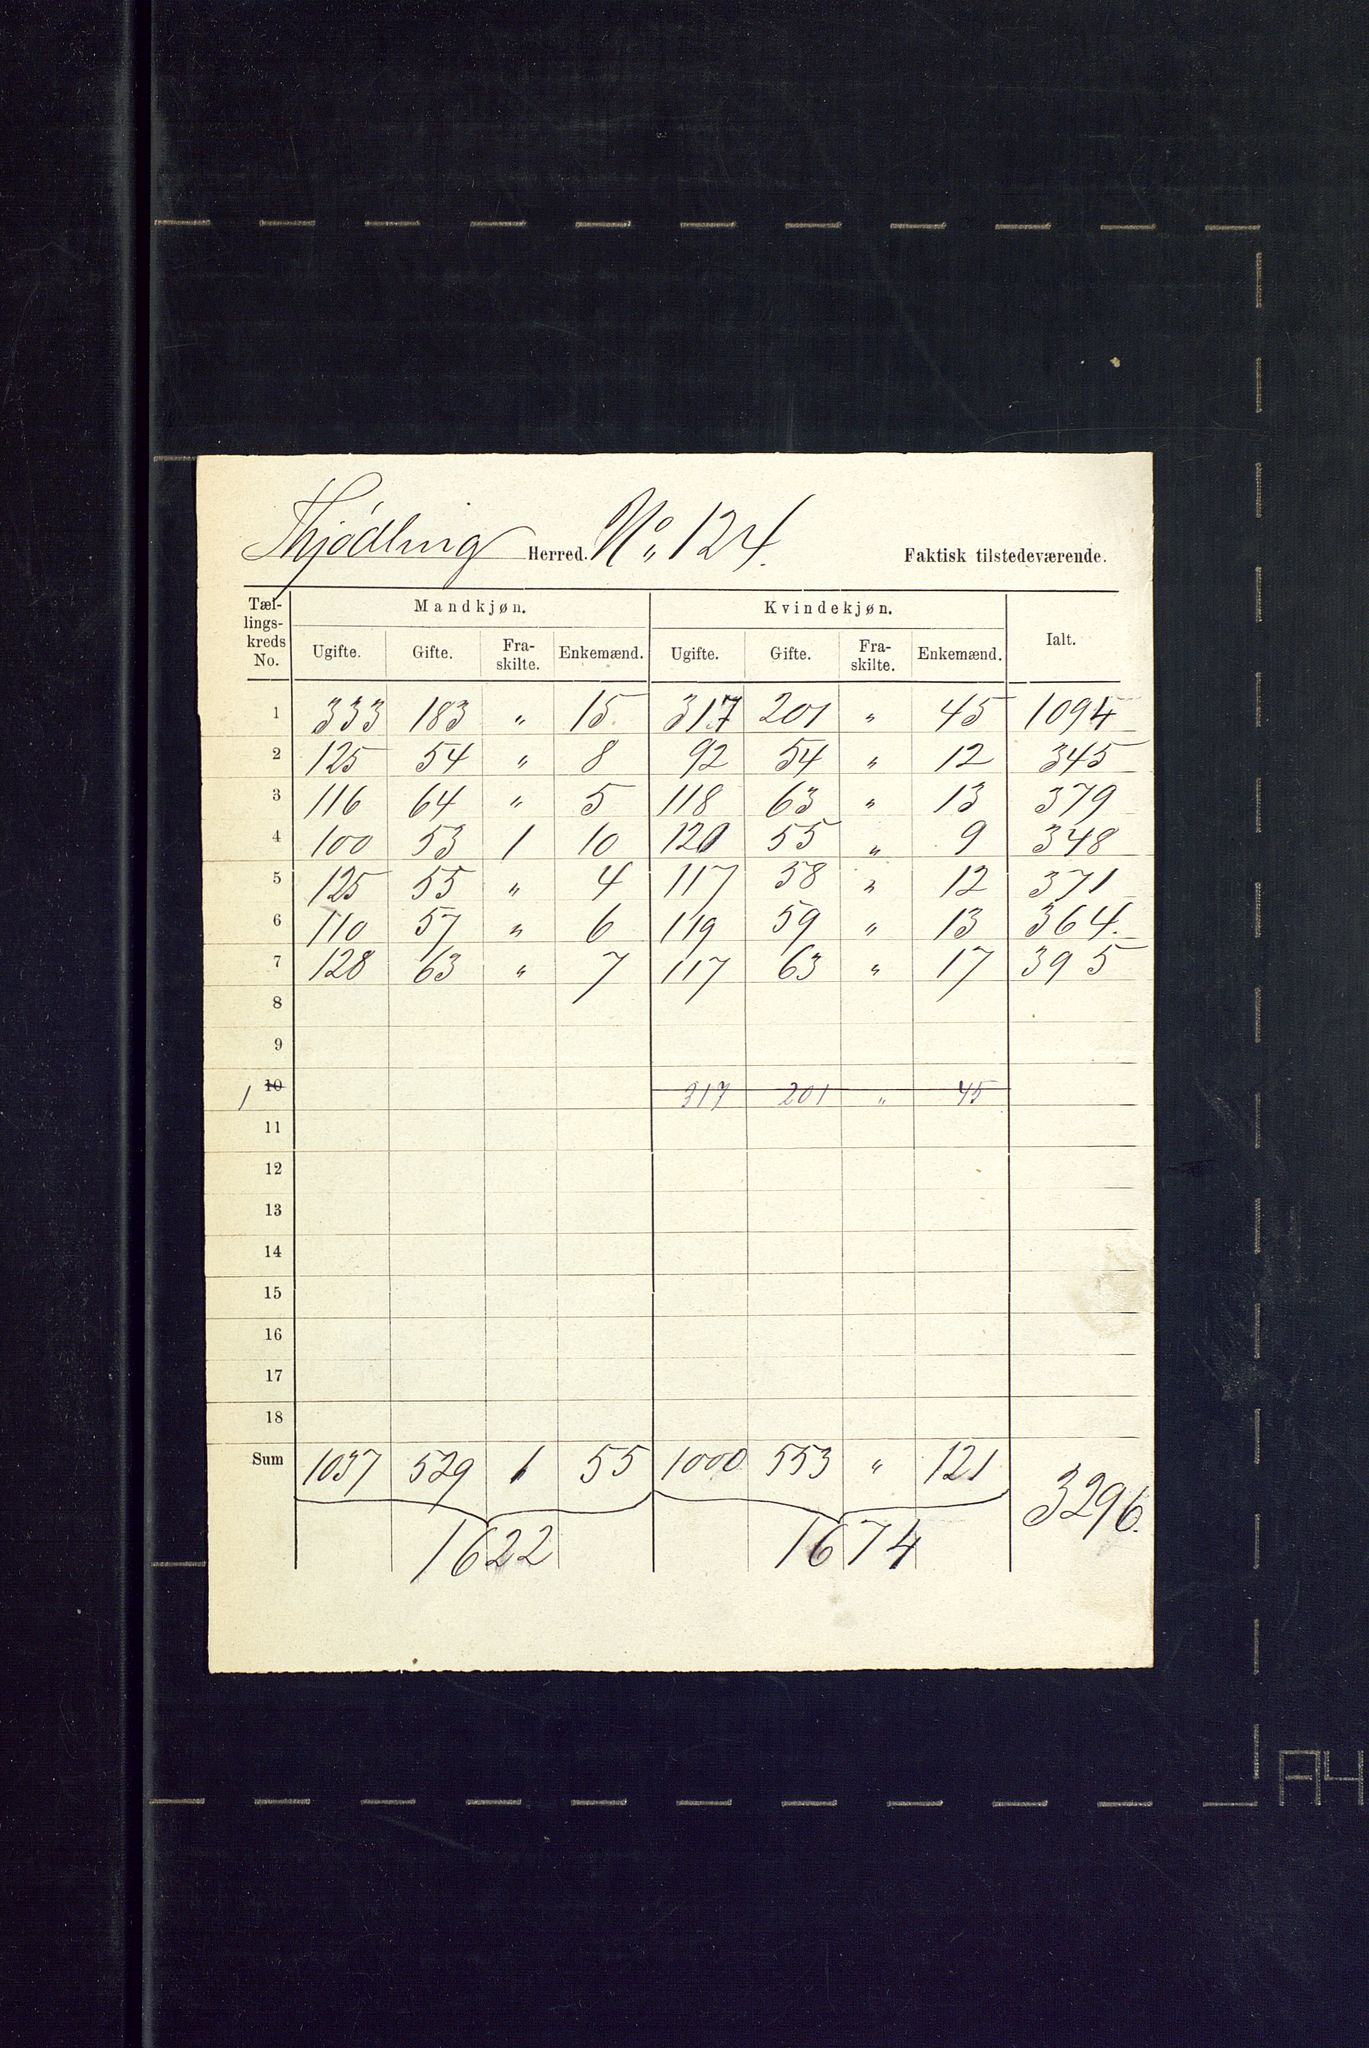 Thjødling Herred. No 124. Faktisk tilstedeværende.
Tællingskreds No. Mandkjøn. Kvindekjøn. Ialt.
Ugifte. Gifte. Fraskilte. Enkemænd. Ugifte. Gifte. Fraskilte. Enkemænd.
1 333 183 " 15 317 201 " 45 1094
2 125 54 " 8 92 54 " 12 345
3 116 64 " 5 118 63 " 13 379
4 100 53 1 10 120 55 " 9 348
5 125 55 " 4 117 58 " 12 371
6 110 57 " 6 119 59 " 13 364.
7 128 63 " 7 117 63 " 17 395
8
9
1 10 317 201 " 45
11
12
13
14
15
16
17
18
Sum 1037 529 1 55 1000 553 " 121 3296.
1622 1674
A4